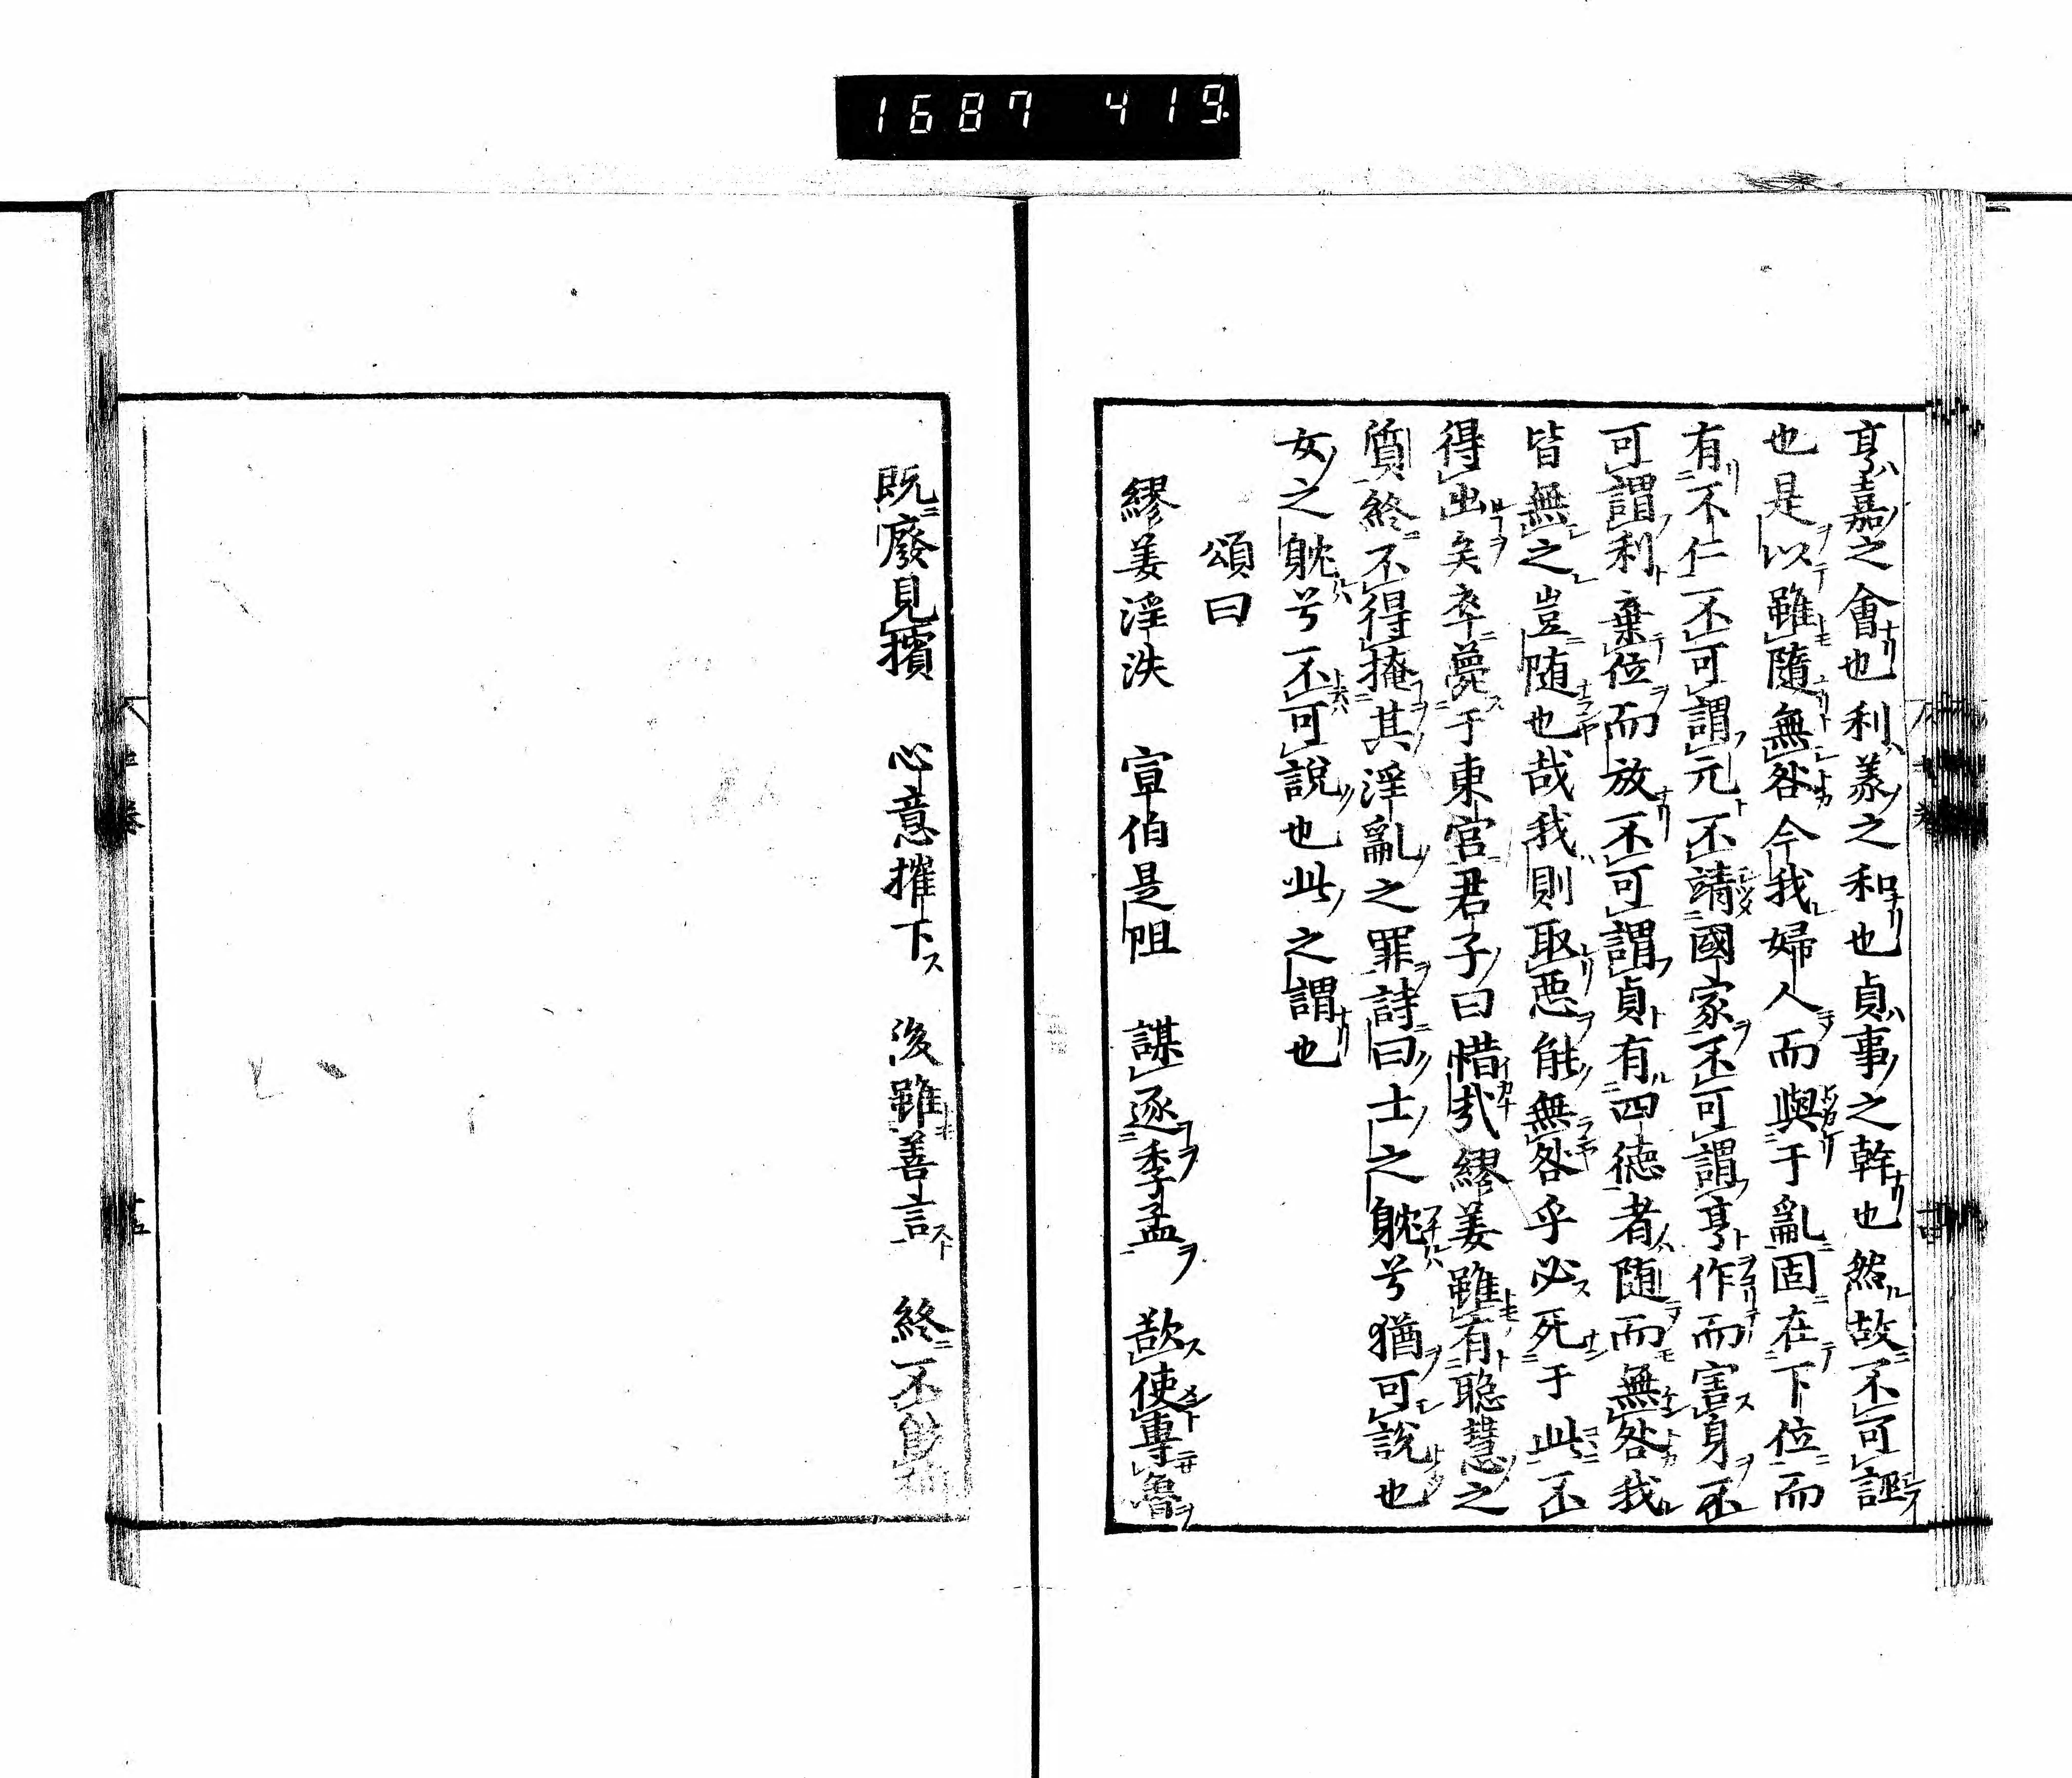 1687 419.
亨嘉之會也利義之和也貞事之幹也然故不可誣
也是以雖隨無咎今我婦人而與于亂固在下位而
有不仁不可謂元不靖國家不可謂亨作而害身不
可謂利棄位而放不可謂貞有四德者随而無咎我
皆無之豈随也哉我則取惡能無咎乎必死于此不
得出矣卒薨于東宮君子曰惜哉繆姜雖有聡慧之
質終不得掩其淫亂之罪詩曰士之躭兮猶可說也
女之躭兮不可說也此之謂也
頌曰
繆姜淫泆 宣伯是阻 謀逐季孟 欲使專魯
既廢見擯 心意摧下 後雖善言 終不能補